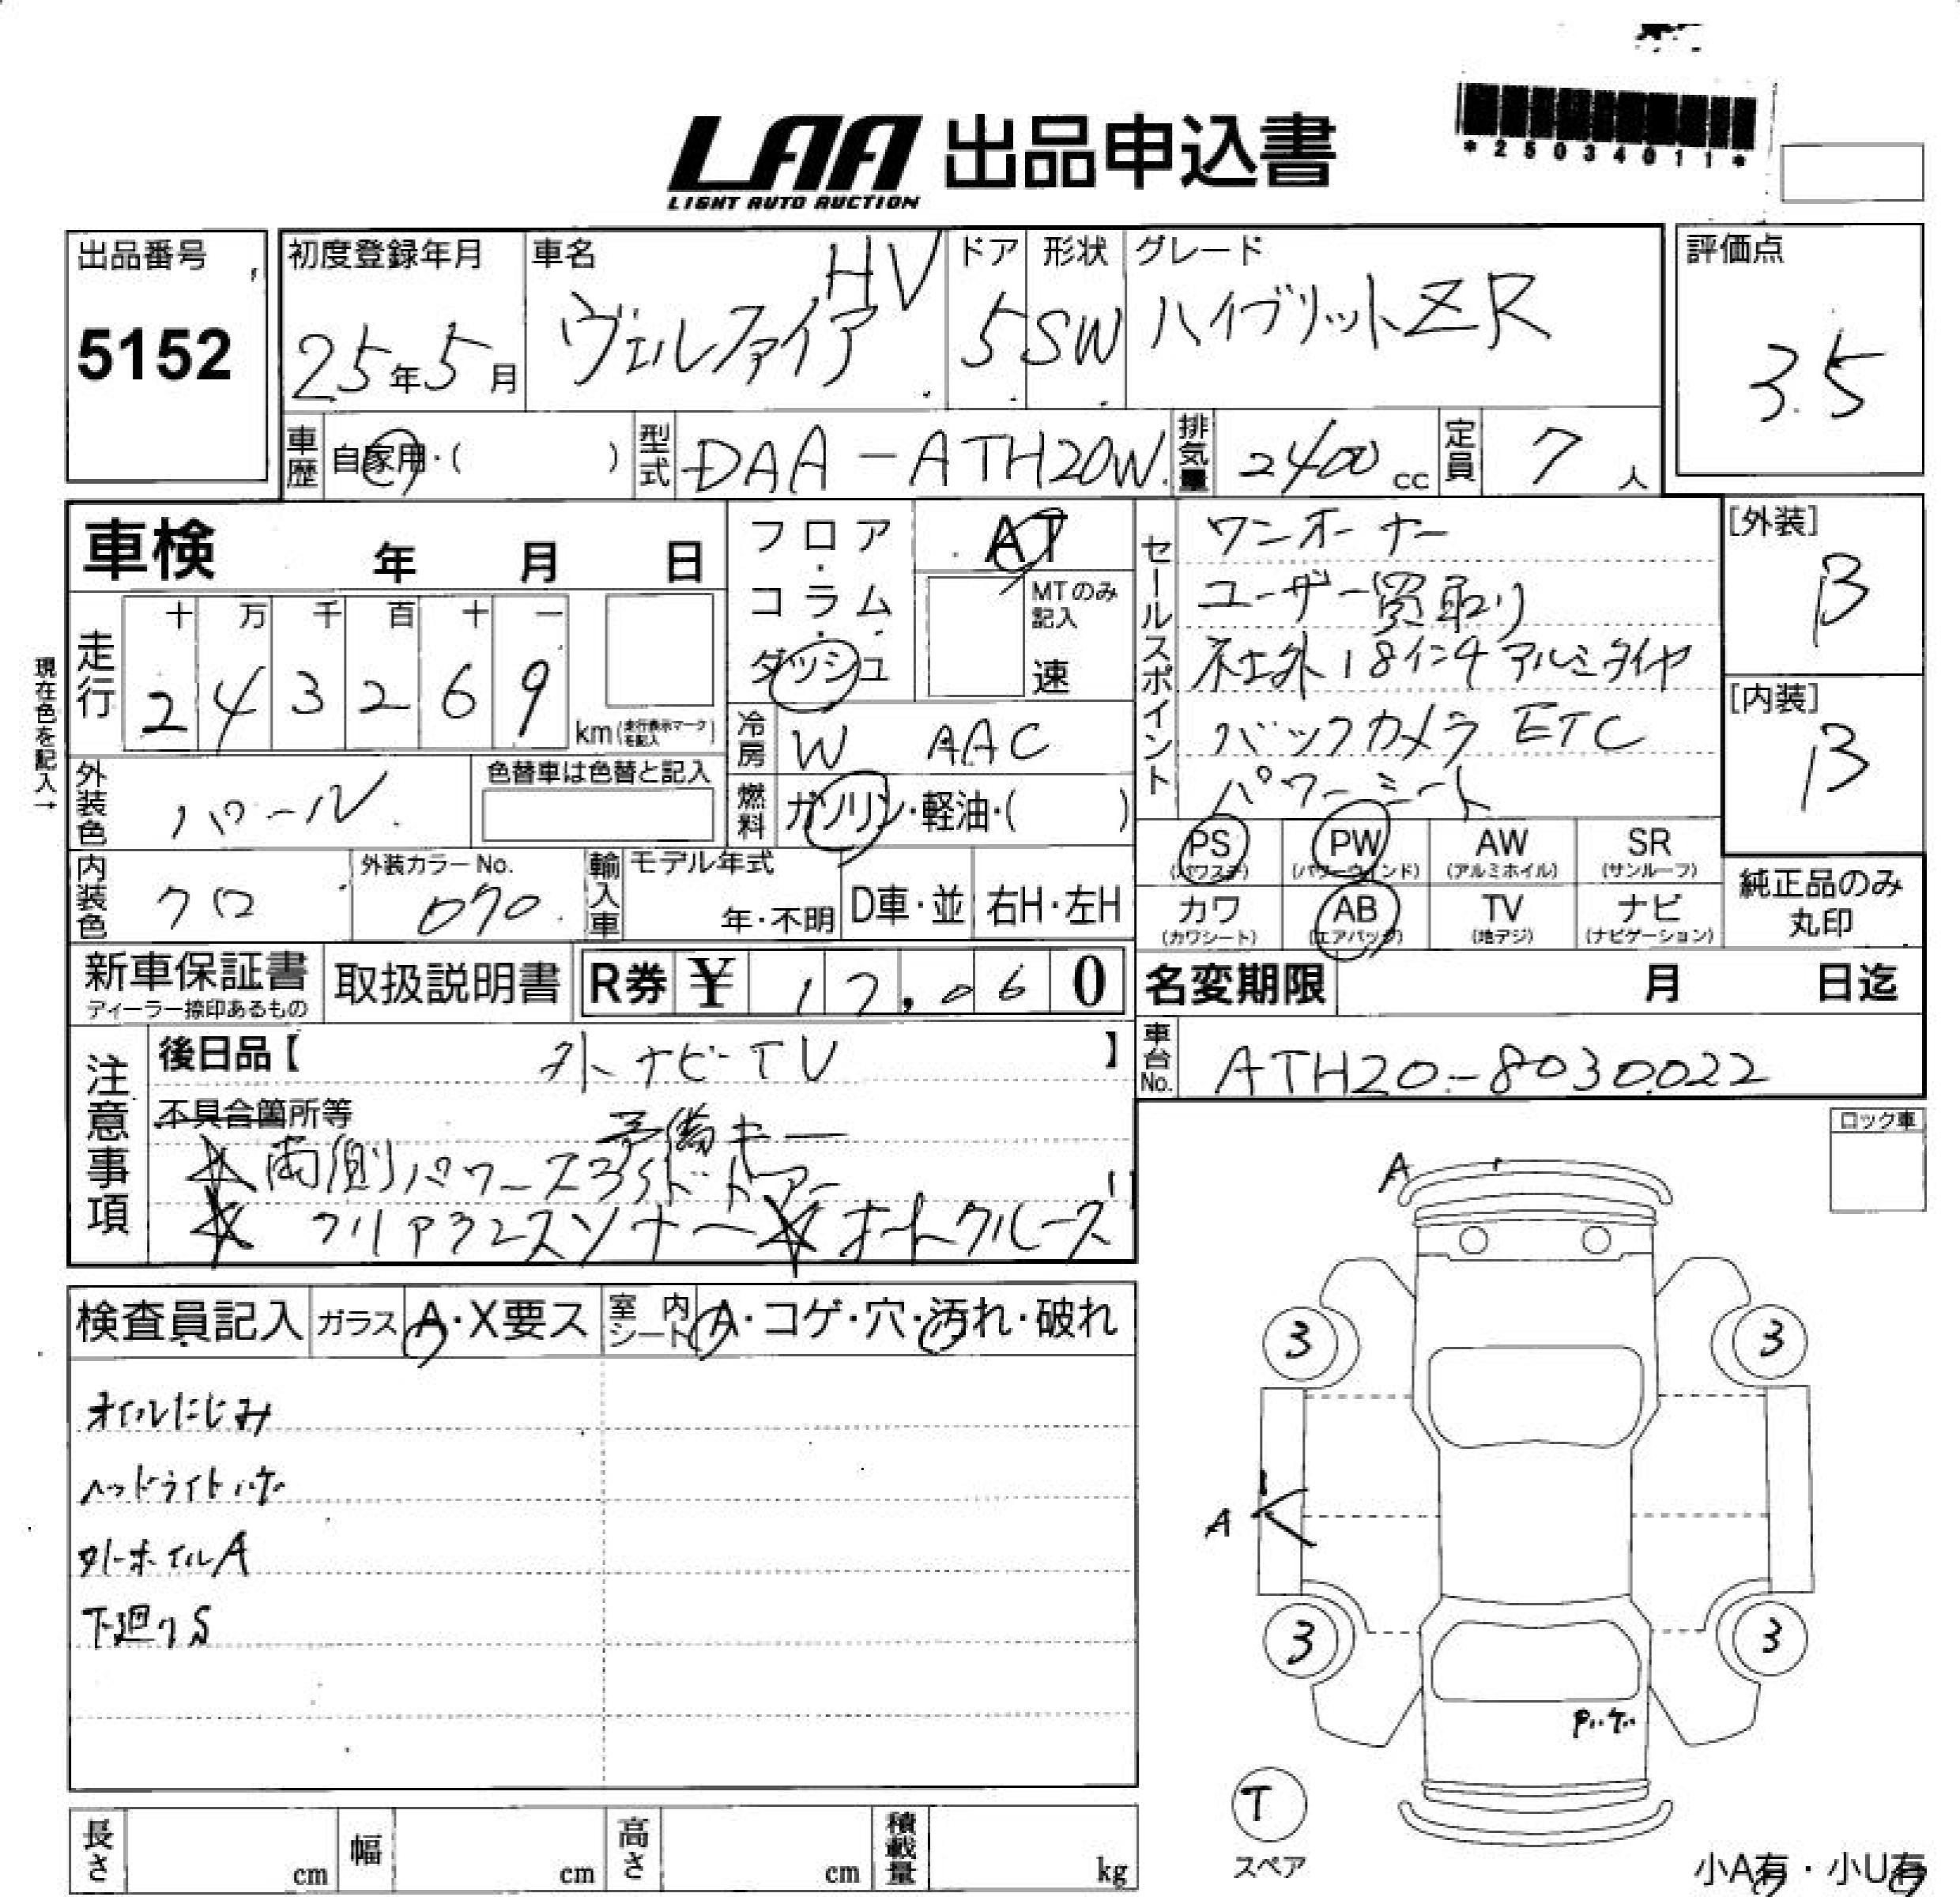 LAA 出品申込書
LIGHT AUTO AUCTION
*25034011*
出品番号
5152
初度登録年月
25年5月
車名
HV
ヴェルファイア
ドア
5
形状
SW
グレード
ハイブリットZR
評価点
3.5
車歴
自家用・( )
型式
DAA-ATH20W
排気量
2400cc
定員
7人
車検 年 月 日
フロア・コラム・ダッシュ
AT
MTのみ記入
速
現在色を記入→
走行
十 万 千 百 十 一
2 4 3 2 6 9
km(走行表示マークを記入)
冷房
W AAC
外装色
パール
色替車は色替と記入
燃料
ガソリン・軽油・( )
内装色
クロ
外装カラーNo.
070
輸入車
モデル年式
年・不明
D車・並
右H・左H
セールスポイント
ワンオーナー
ユーザー買取り
社外18インチアルミタイヤ
バックカメラ ETC
パワーシート
[外装]
B
[内装]
B
PS (パワステ)
PW (パワーウインド)
AW (アルミホイル)
SR (サンルーフ)
カワ (カワシート)
AB (エアバック)
TV (地デジ)
ナビ (ナビゲーション)
純正品のみ丸印
新車保証書
ディーラー捺印あるもの
取扱説明書
R券 ¥ 12,060
名変期限 月 日迄
車台No.
ATH20-8030022
注意事項
後日品【 外ナビ-TV 】
不具合箇所等
予備キー
☆両側パワースライドドアー
☆クリアランスソナー☆オートクルーズ
ロック車
検査員記入
ガラス
A・X要ス
室内シート
A・コゲ・穴・汚れ・破れ
オイルにじみ
ヘッドライトハゲ
外ホイルA
下廻りS
A
3
3
A
3
3
Pハゲ
T
スペア
長さ cm
幅 cm
高さ cm
積載量 kg
小A有・小U有